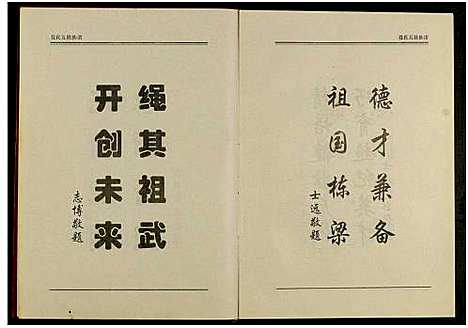 德才兼备
祖国栋梁
士远敬题
绳其祖武
开创未来
志博敬题